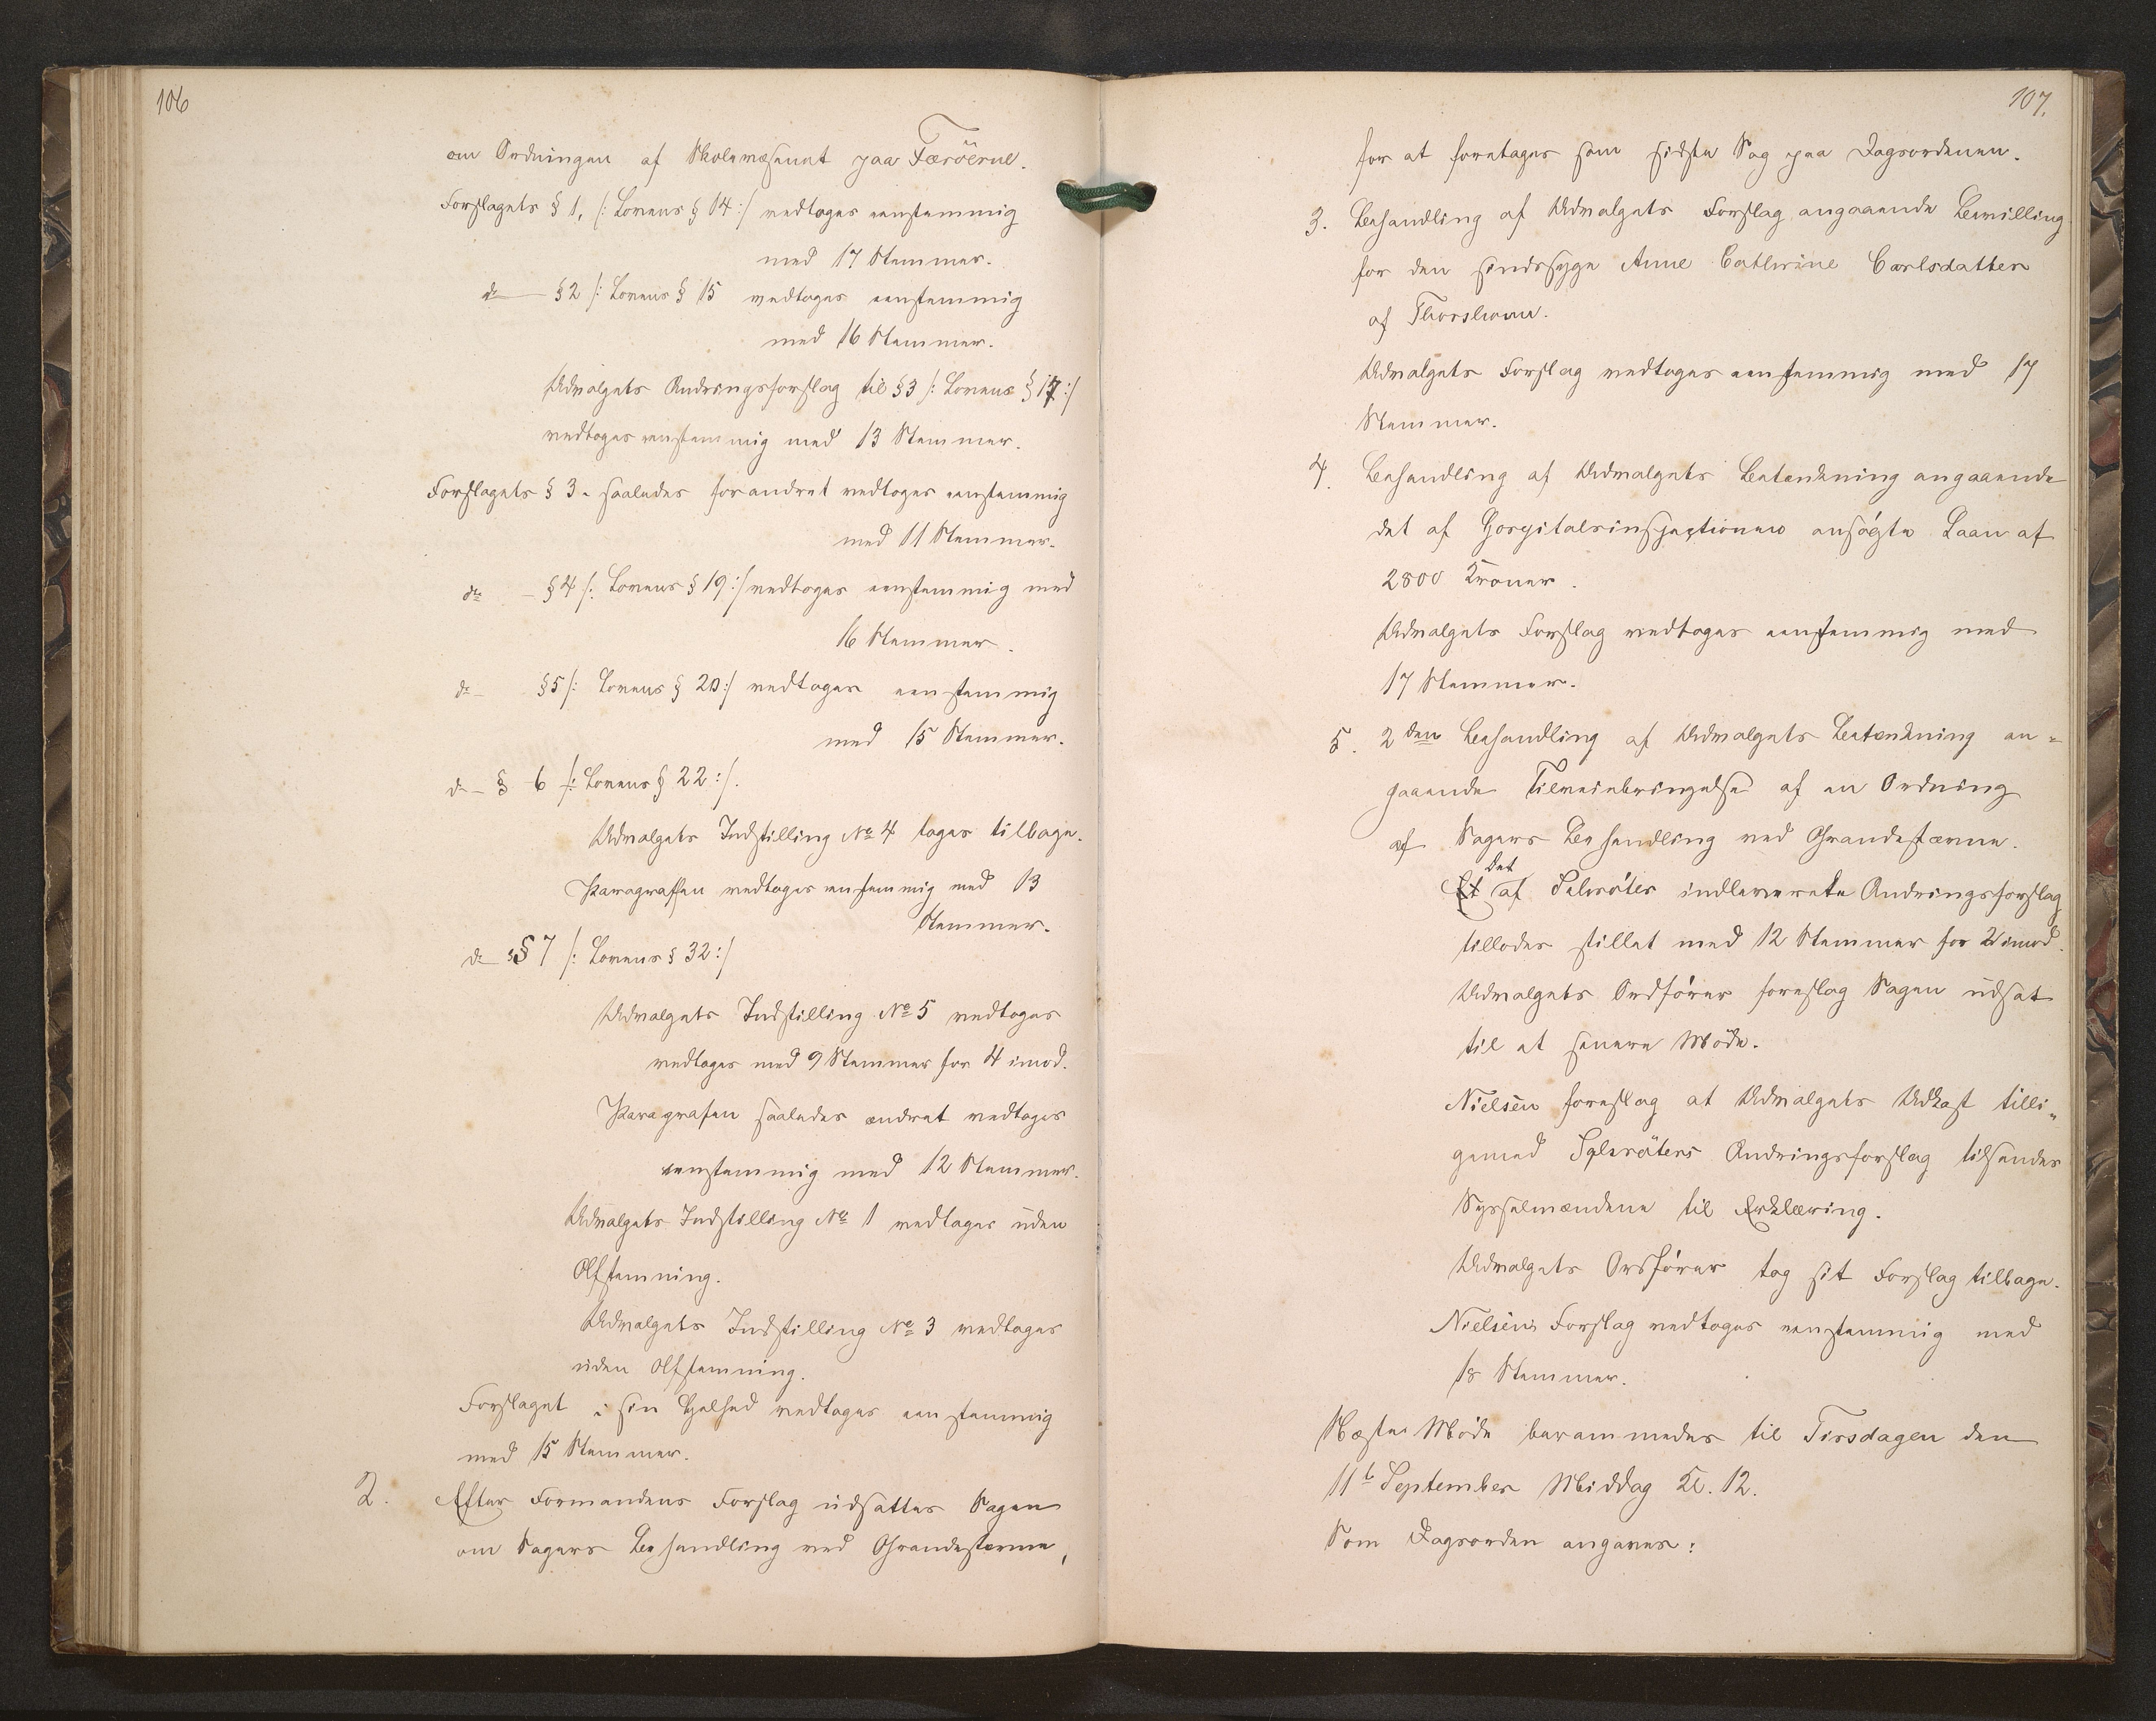 106
om Ordningen af Skolevæsenet paa Færöerne.
Forslagets § 1, /: Lovens § 14 :/ vedtoges eenstemmig
med 17 Stemmer.
do — § 2 /: Lovens § 15 vedtoges eenstemmig
med 16 Stemmer.
Udvalgets Ændringsforslag til § 3 /: Lovens § 17 :/
vedtoges eenstemmig med 13 Stemmer.
Forslagets § 3 - saaledes forandret vedtoges eenstemmig
med 11 Stemmer.
do — § 4 /: Lovens § 19 :/ vedtoges eenstemmig med
16 Stemmer.
do — § 5 /: Lovens § 20 :/ vedtoges eenstemmig
med 15 Stemmer.
do — § 6 /: Lovens § 22 :/.
Udvalgets Indstilling No 4 toges tilbage.
Paragraffen vedtoges eenstemmig med 13
Stemmer.
do § 7 /: Lovens § 32 :/
Udvalgets Indstilling No 5 vedtoges
vedtoges med 9 Stemmer for 4 imod.
Paragrafen saaledes ændret vedtoges
eenstemmig med 12 Stemmer.
Udvalgets Indstilling No 1 vedtoges uden
Afstemning.
Udvalgets Indstilling No 3 vedtoges
uden Afstemning.
Forslaget i sin Helhed vedtoges eenstemmig
med 15 Stemmer.
2. Efter Formandens Forslag udsattes Sagen
om Sagers Behandling ved Grandestævne,
107.
for at foretages som sidste Sag paa Dagsordenen.
3. Behandling af Udvalgets Forslag angaaende Bevilling
for den sindssyge Anne Cathrine Carlsdatter
af Thorshavn.
Udvalgets Forslag vedtoges eenstemmig med 17
Stemmer.
4. Behandling af Udvalgets Betænkning angaaende
det af Hospitalsinspectionen ansøgte Laan af
2800 Kroner.
Udvalgets Forslag vedtoges eenstemmig med
17 Stemmer.
5. 2den Behandling af Udvalgets Betænkning an=
gaaende Tilveiebringelse af en Ordning
af Sagers Behandling ved Grandestævne.
Det
Et af indleverede Ændringsforslag
tillodes stillet med 12 Stemmer for 2 imod.
Udvalgets Ordfører foreslog Sagen udsat
til et senere Møde.
Nielsen foreslog at Udvalgets Udkast tilli„
gemed Ændringsforslag tilsendes
Sysselmændene til Erklæring.
Udvalgets Ordfører tog sit Forslag tilbage.
Nielsens Forslag vedtoges eenstemmig med
18 Stemmer.
Næste Møde berammedes til Tirsdagen den
11te September Middag Kl. 12.
Som Dagsorden angaves: